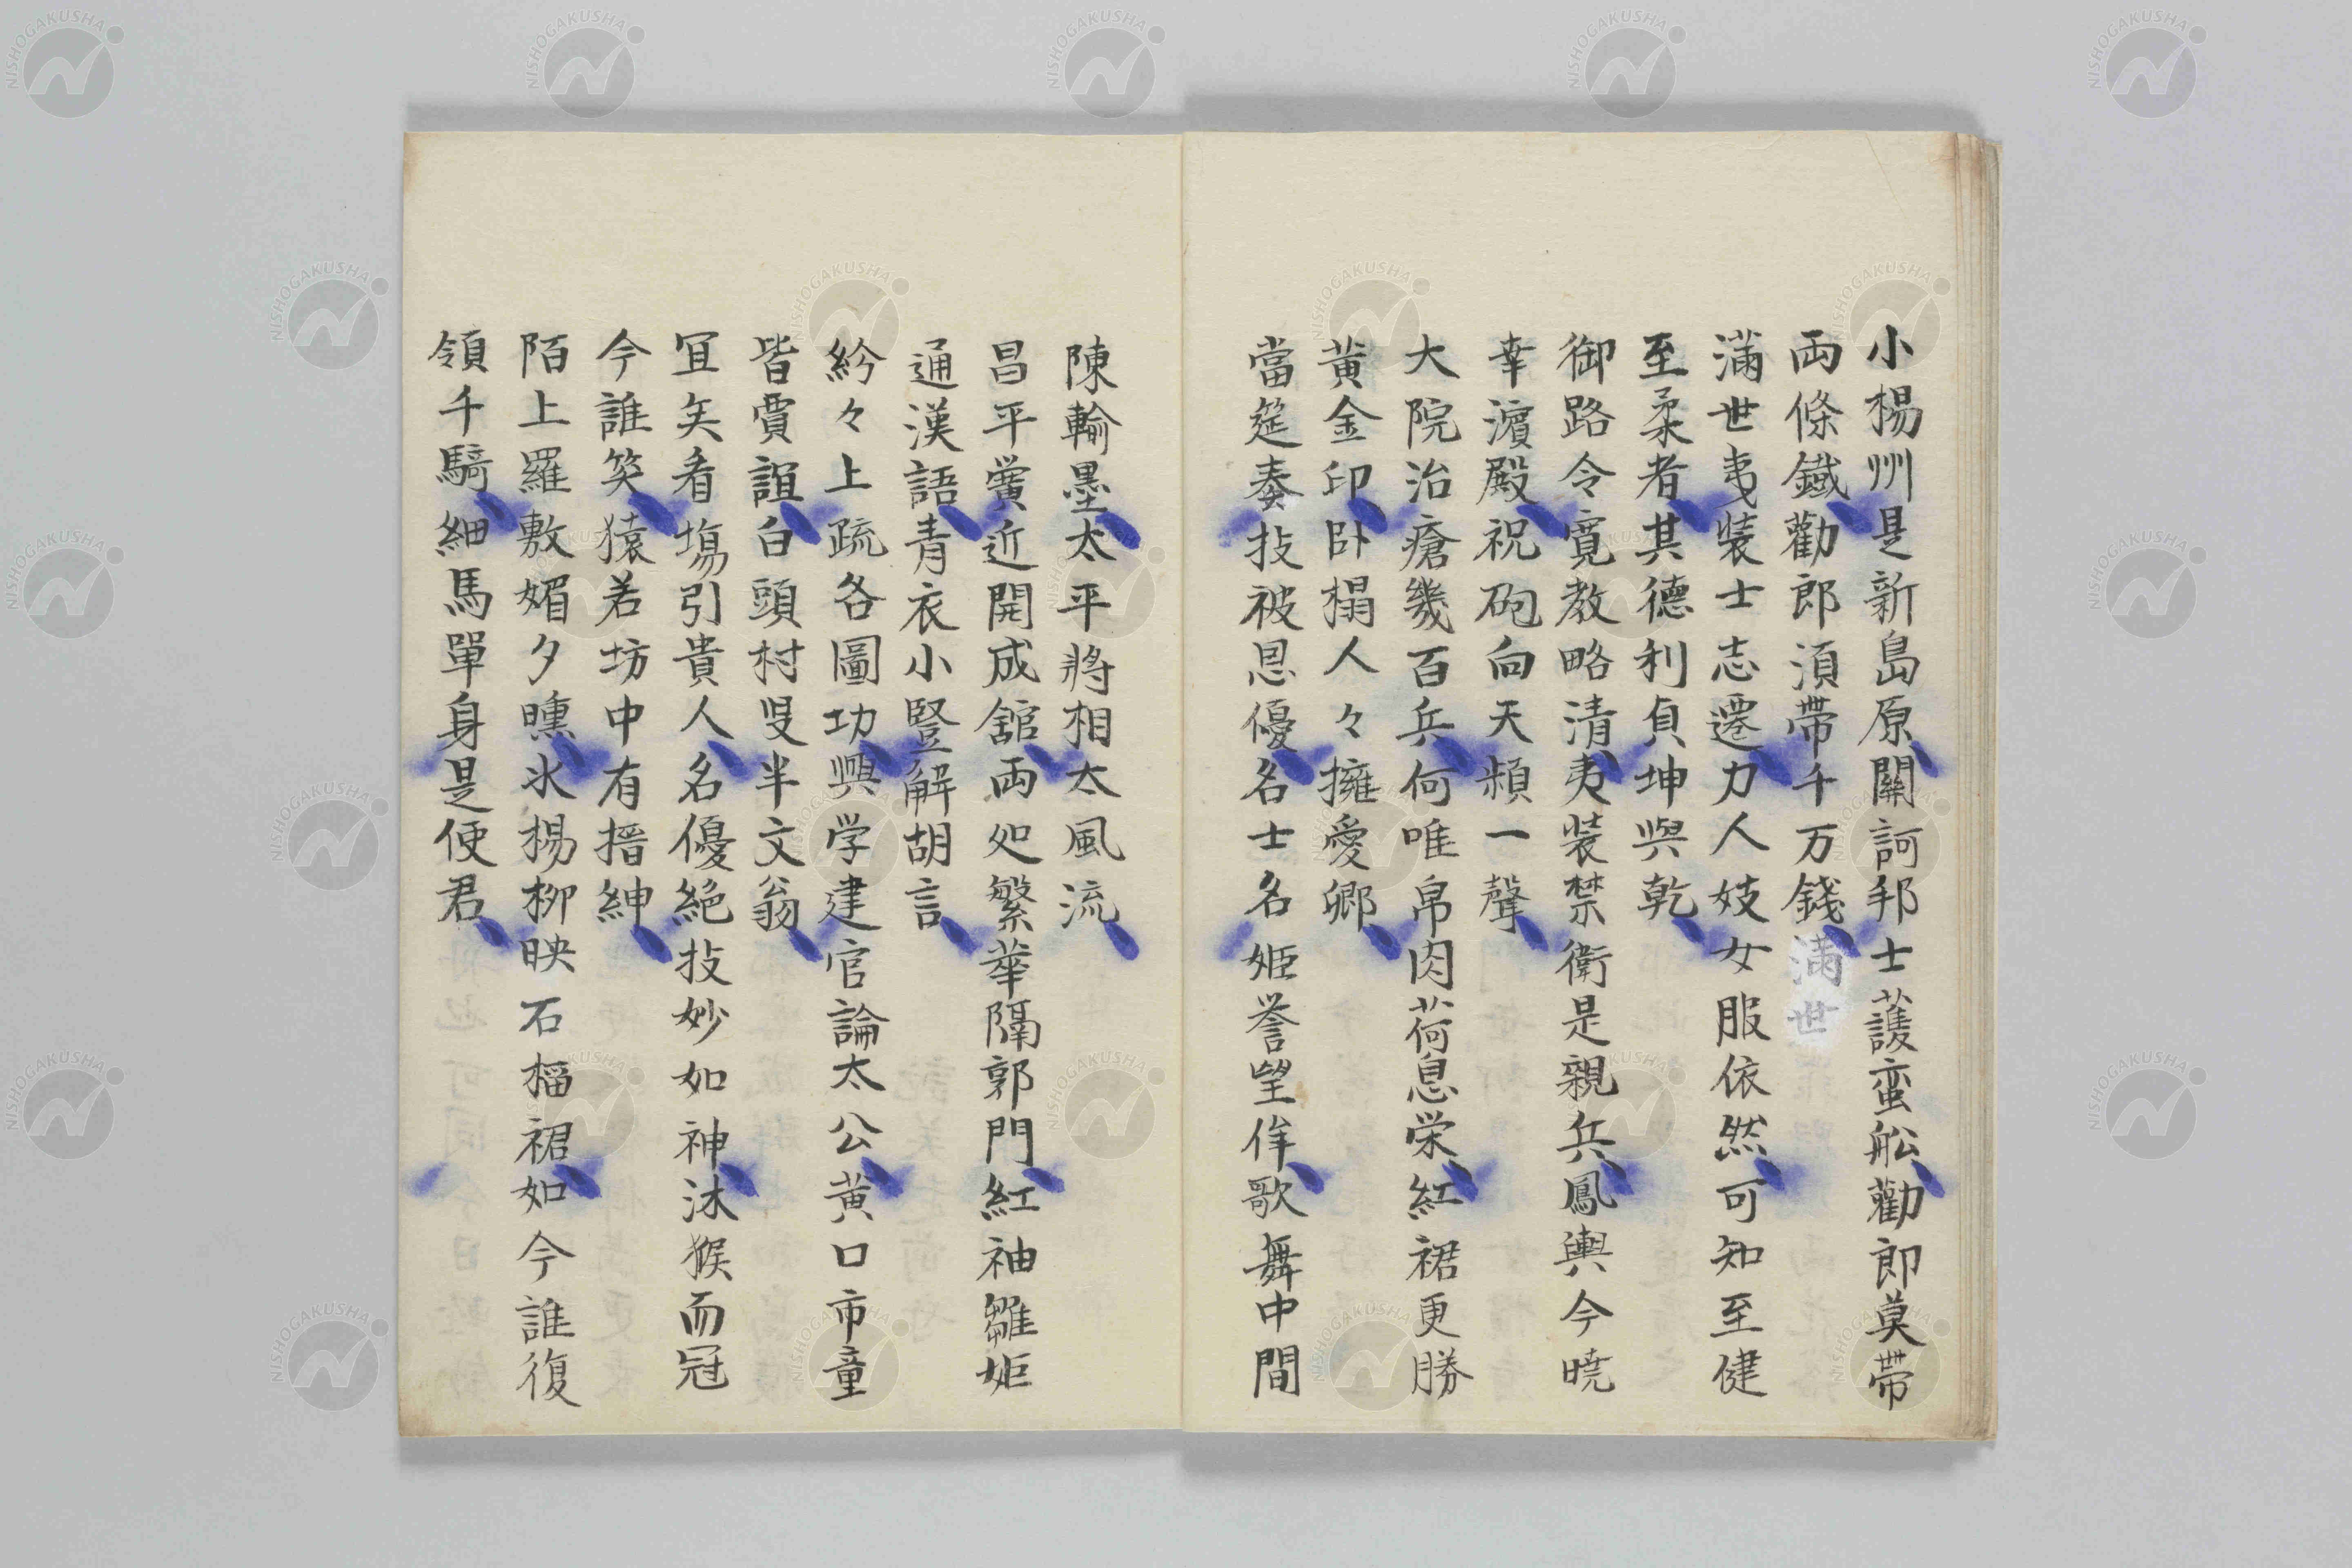 小楊州是新島原關訶邦士護蛮舩勸郎莫帶
両條鐡勸郎湏帶千万錢満世
滿世夷裝士志遷力人妓女服依然可知至健
至柔者其德利貞坤與乾
御路令寛教略清夷装禁衛是親兵鳳輿今曉
幸濵殿祝砲向天頻一聲
大院治瘡幾百兵何唯帛肉荷息栄紅裙更勝
黄金印卧榻人々擁愛卿
當筵奏技被恩優名士名姫誉望侔歌舞中間
陳輸墨太平將相太風流
昌平黌近開成舘両処繁華隔郭門紅袖雛姫
通漢語青衣小豎解胡言
紛々上疏各圖功興学建官論太公黄口市童
皆賣誼白頭村叟半文翁
冝矣看塲引貴人名優絶技妙如神沐猴而冠
今誰笑猿若坊中有搢紳
陌上羅敷媚夕曛氷楊柳映石榴裙如今誰復
領千騎細馬單身是使君
NISHOGAKUSHA